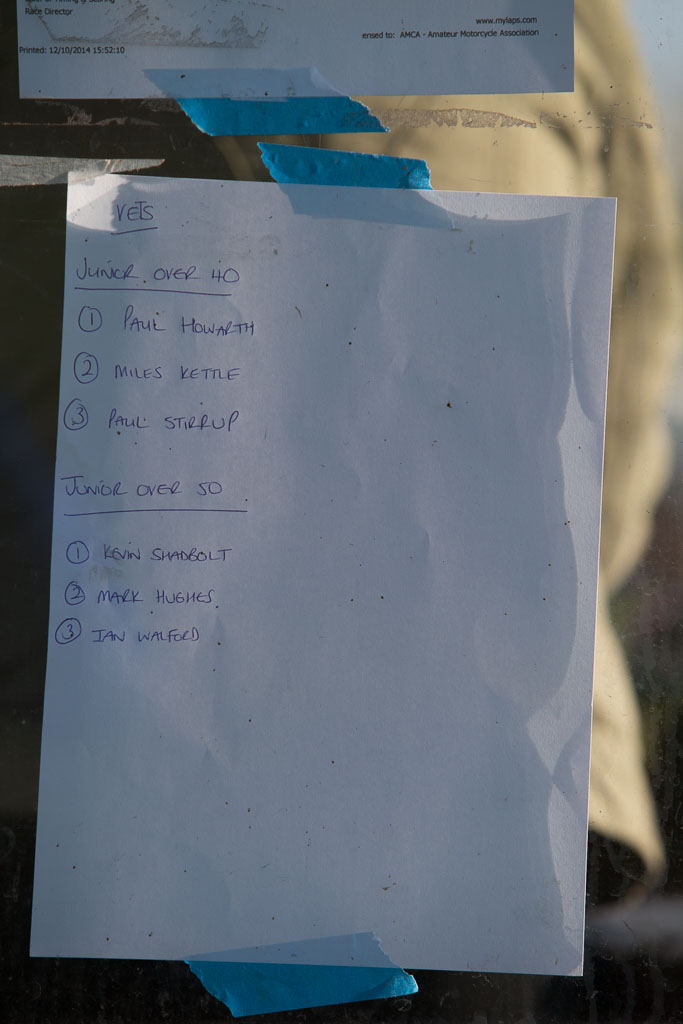 Race Director
www.mylaps.com
ensed to: AMCA - Amateur Motorcycle Association
Printed: 12/10/2014 15:52:10
VETS
JUNIOR OVER 40
1 PAUL HOWARTH
2 MILES KETTLE
3 PAUL STIRRUP
JUNIOR OVER 50
1 KEVIN SHADBOLT
2 MARK HUGHES
3 IAN WALFORD